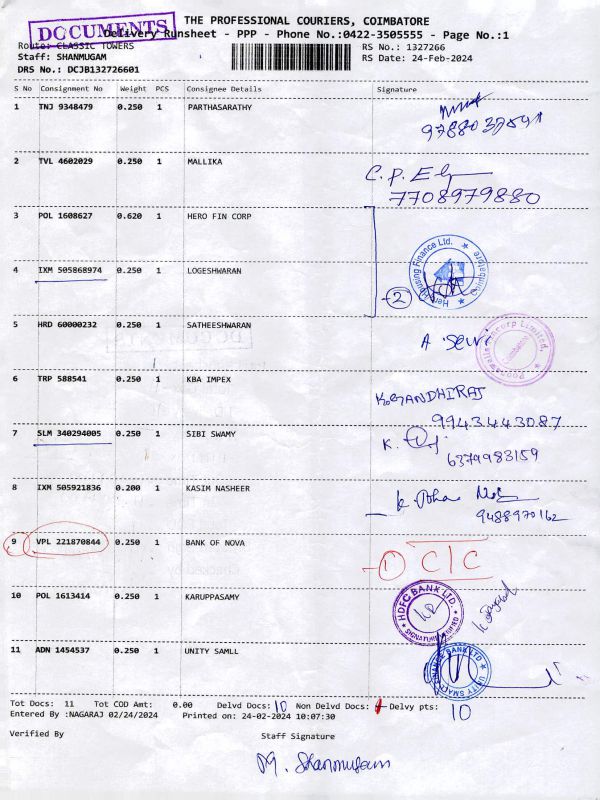 THE PROFESSIONAL COURIERS, COIMBATORE
DOCUMENTS
Delivery Runsheet - PPP - Phone No.:0422-3505555 - Page No.:1
Route: CLASSIC TOWERS
RS No.: 1327266
Staff: SHANMUGAM
RS Date: 24-Feb-2024
DRS No.: DCJB132726601
S No Consignment No Weight PCS Consignee Details Signature
1 TNJ 9348479 0.250 1 PARTHASARATHY
2 TVL 4602029 0.250 1 MALLIKA
7708979880
3 POL 1608627 0.620 1 HERO FIN CORP
Housing Finance Ltd. Coimbatore
4 IXM 505868974 0.250 1 LOGESHWARAN
2
5 HRD 60000232 0.250 1 SATHEESHWARAN
A Selvi
6 TRP 588541 0.250 1 KBA IMPEX
K.GANDHIRAJ
9943443087
7 SLM 340294005 0.250 1 SIBI SWAMY
K.
6374983159
8 IXM 505921836 0.200 1 KASIM NASHEER
9488970162
9 VPL 221870844 0.250 1 BANK OF NOVA
1 C/C
10 POL 1613414 0.250 1 KARUPPASAMY
HDFC BANK LTD.
11 ADN 1454537 0.250 1 UNITY SAMLL
UNITY SMALL FINANCE BANK LTD
Tot Docs: 11 Tot COD Amt: 0.00 Delvd Docs: 10 Non Delvd Docs: 1 Delvy pts: 10
Entered By :NAGARAJ 02/24/2024 Printed on: 24-02-2024 10:07:30
Verified By Staff Signature
M. Shanmugam